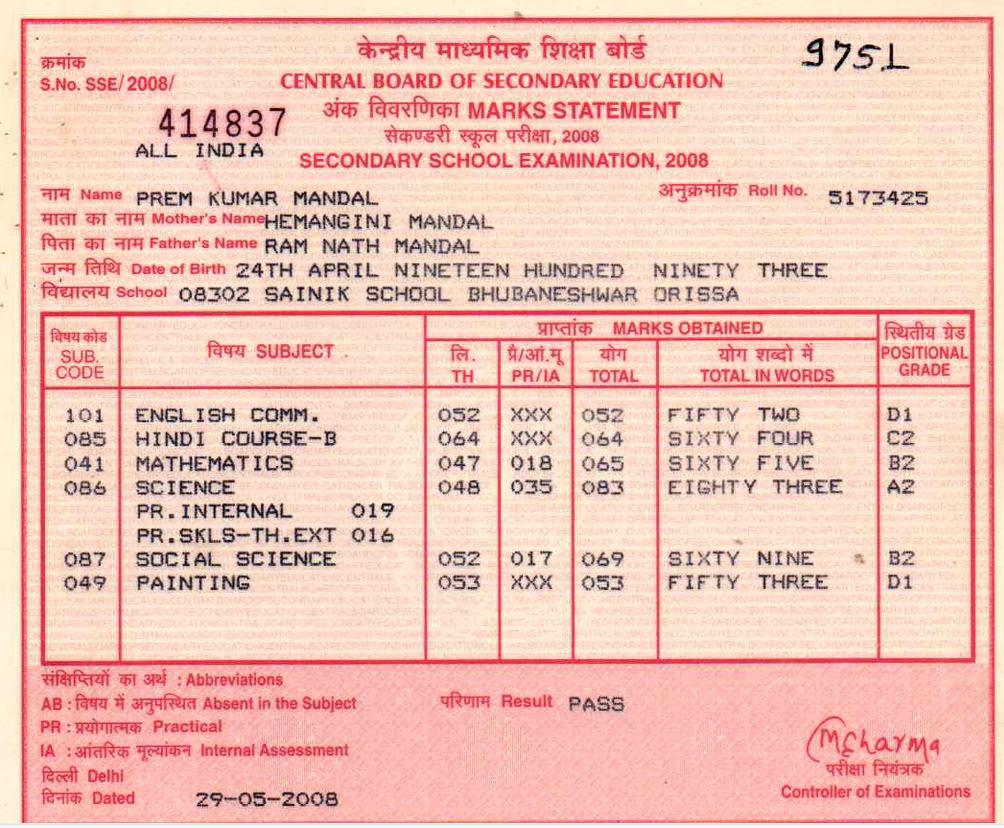 केन्द्रीय माध्यमिक शिक्षा बोर्ड
9751
क्रमांक
S.No. SSE/2008/
CENTRAL BOARD OF SECONDARY EDUCATION
414837
अंक विवरणिका MARKS STATEMENT
सेकण्डरी स्कूल परीक्षा, 2008
ALL INDIA
SECONDARY SCHOOL EXAMINATION, 2008
नाम Name PREM KUMAR MANDAL अनुक्रमांक Roll No. 5173425
माता का नाम Mother's Name HEMANGINI MANDAL
पिता का नाम Father's Name RAM NATH MANDAL
जन्म तिथि Date of Birth 24TH APRIL NINETEEN HUNDRED NINETY THREE
विद्यालय School 08302 SAINIK SCHOOL BHUBANESHWAR ORISSA
विषय कोड SUB. CODE विषय SUBJECT प्राप्तांक MARKS OBTAINED स्थितीय ग्रेड POSITIONAL GRADE
लि. TH प्रै/आं.मू PR/IA योग TOTAL योग शब्दो में TOTAL IN WORDS
101 ENGLISH COMM. 052 XXX 052 FIFTY TWO D1
085 HINDI COURSE-B 064 XXX 064 SIXTY FOUR C2
041 MATHEMATICS 047 018 065 SIXTY FIVE B2
086 SCIENCE 048 035 083 EIGHTY THREE A2
PR.INTERNAL 019
PR.SKLS-TH.EXT 016
087 SOCIAL SCIENCE 052 017 069 SIXTY NINE B2
049 PAINTING 053 XXX 053 FIFTY THREE D1
संक्षिप्तियों का अर्थ : Abbreviations
AB : विषय में अनुपस्थित Absent in the Subject परिणाम Result PASS
PR : प्रयोगात्मक Practical
IA : आंतरिक मूल्यांकन Internal Assessment
दिल्ली Delhi
परीक्षा नियंत्रक
दिनांक Dated 29-05-2008
Controller of Examinations